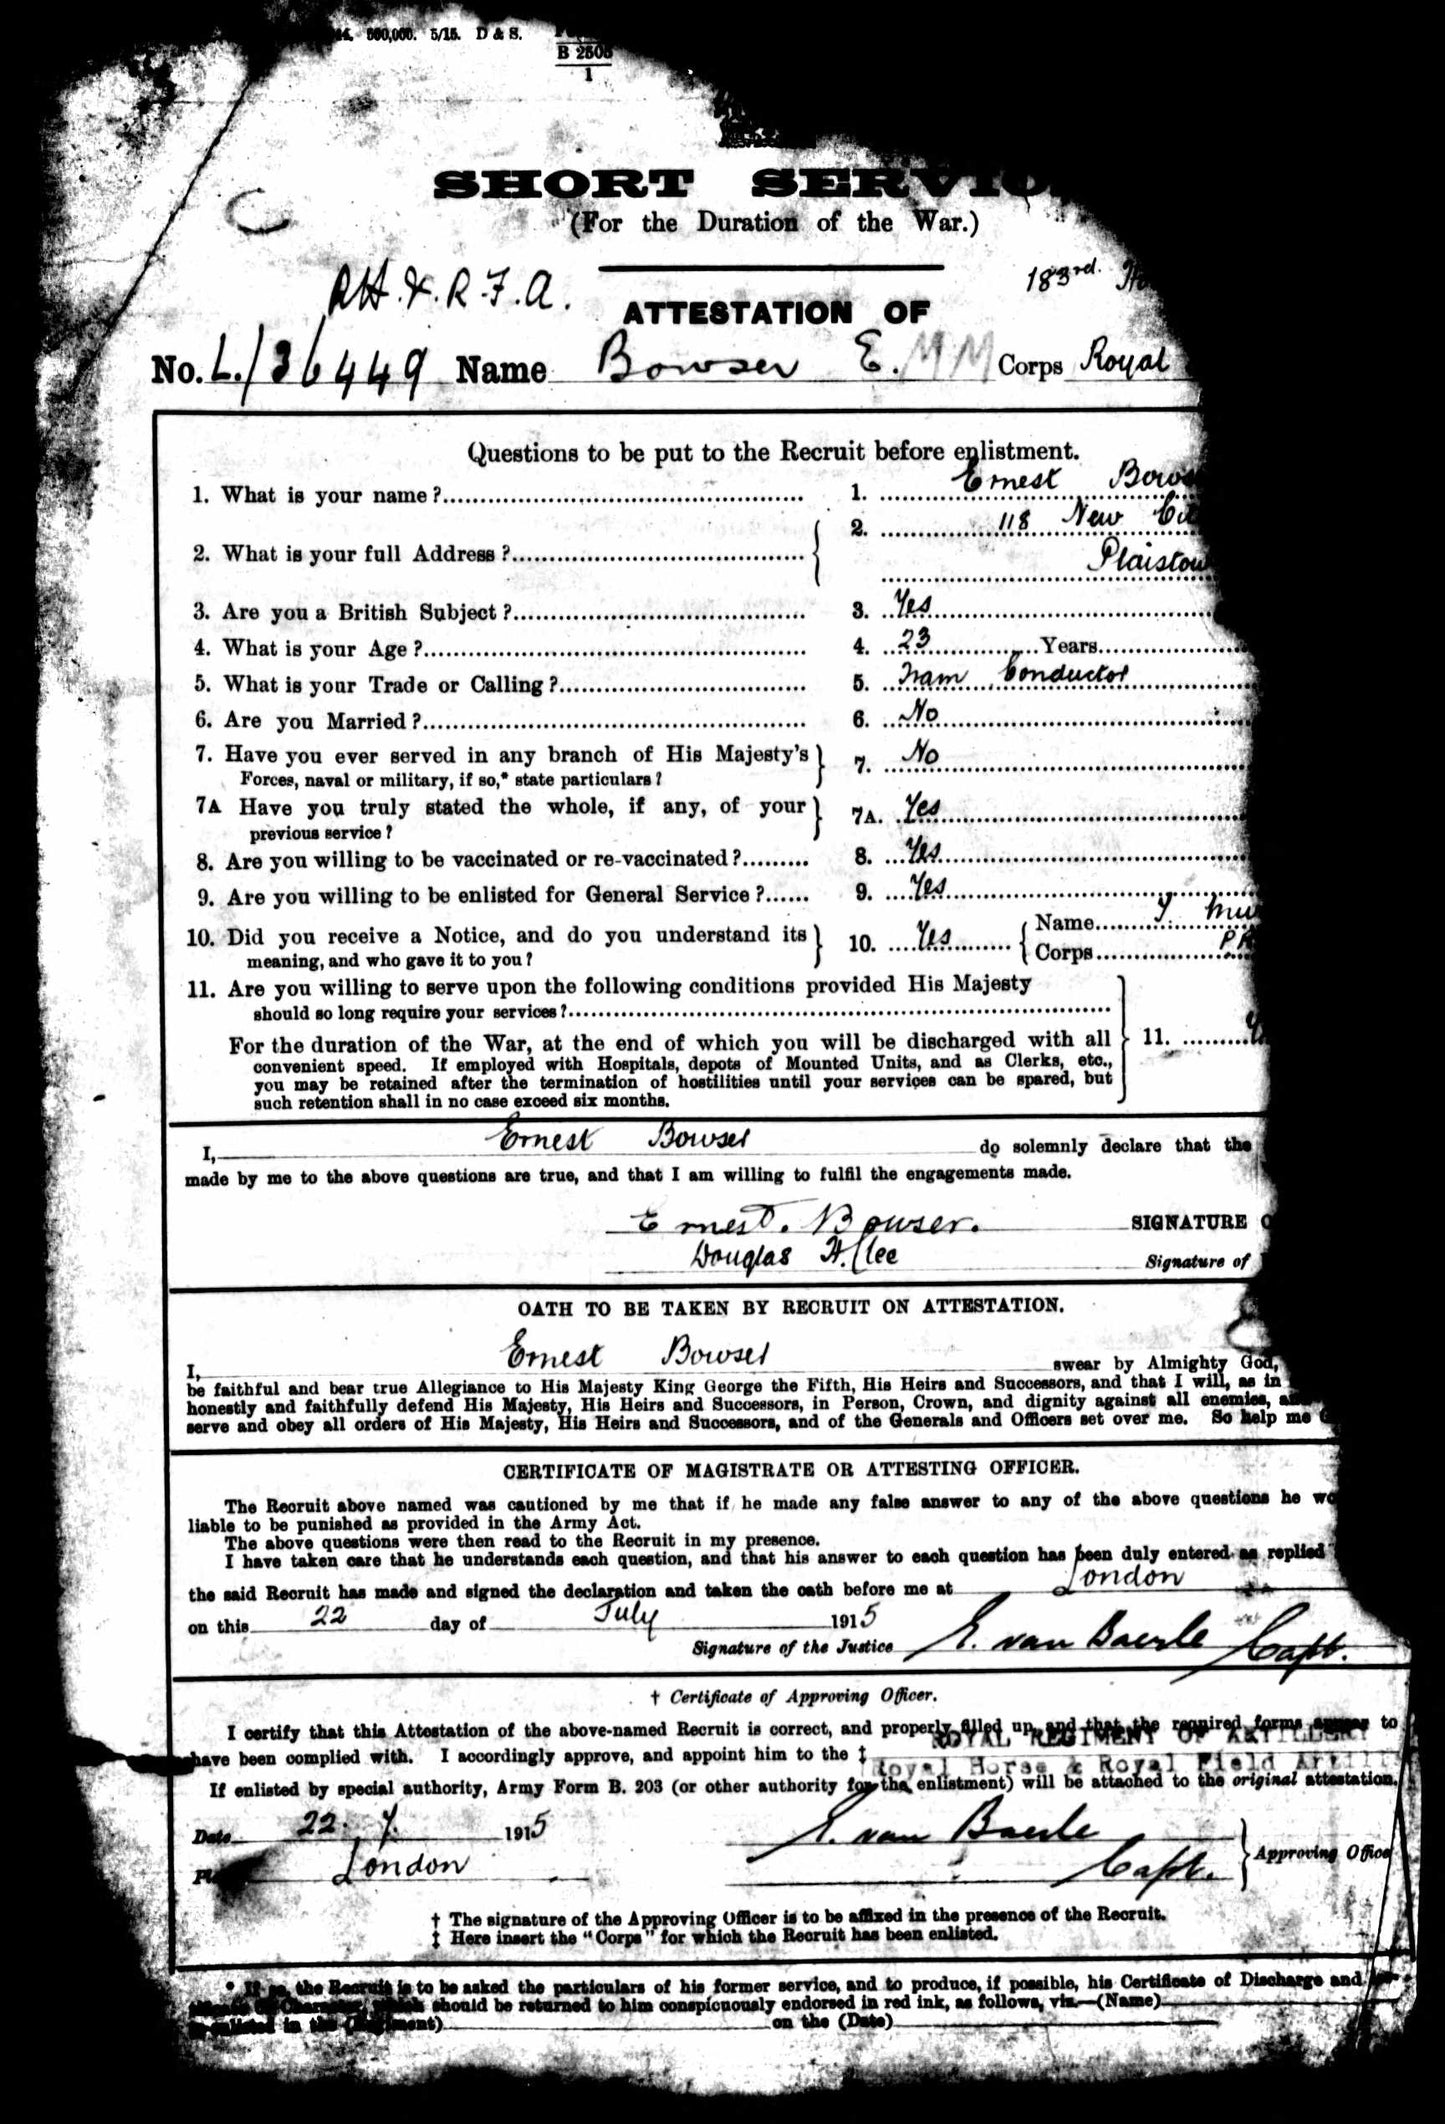 500,000. 5/15. D & S.
B 2505
1
SHORT SERVIC
(For the Duration of the War.)
183rd.
R.H. & R.F.A.
ATTESTATION OF
No. L./36449 Name Bowser E. MM Corps Royal
Questions to be put to the Recruit before enlistment.
1. What is your name? 1. Ernest Bows
2. What is your full Address? 2. 118 New
Plaistow
3. Are you a British Subject? 3. Yes
4. What is your Age? 4. 23 Years
5. What is your Trade or Calling? 5. Tram Conductor
6. Are you Married? 6. No
7. Have you ever served in any branch of His Majesty's
Forces, naval or military, if so,* state particulars? 7. No
7A Have you truly stated the whole, if any, of your
previous service? 7A. Yes
8. Are you willing to be vaccinated or re-vaccinated? 8. Yes
9. Are you willing to be enlisted for General Service? 9. Yes
10. Did you receive a Notice, and do you understand its
meaning, and who gave it to you? 10. Yes Name
Corps
11. Are you willing to serve upon the following conditions provided His Majesty
should so long require your services?
For the duration of the War, at the end of which you will be discharged with all 11.
convenient speed. If employed with Hospitals, depots of Mounted Units, and as Clerks, etc.,
you may be retained after the termination of hostilities until your services can be spared, but
such retention shall in no case exceed six months.
I, Ernest Bowser do solemnly declare that the
made by me to the above questions are true, and that I am willing to fulfil the engagements made.
Ernest. Bowser. SIGNATURE O
Douglas H. Signature of
OATH TO BE TAKEN BY RECRUIT ON ATTESTATION.
I, Ernest Bowser swear by Almighty God,
be faithful and bear true Allegiance to His Majesty King George the Fifth, His Heirs and Successors, and that I will, as in
honestly and faithfully defend His Majesty, His Heirs and Successors, in Person, Crown, and dignity against all enemies,
serve and obey all orders of His Majesty, His Heirs and Successors, and of the Generals and Officers set over me. So help me
CERTIFICATE OF MAGISTRATE OR ATTESTING OFFICER.
The Recruit above named was cautioned by me that if he made any false answer to any of the above questions he wo
liable to be punished as provided in the Army Act.
The above questions were then read to the Recruit in my presence.
I have taken care that he understands each question, and that his answer to each question has been duly entered as replied
the said Recruit has made and signed the declaration and taken the oath before me at London
on this 22 day of July 1915
Signature of the Justice E. van Baerle Capt.
† Certificate of Approving Officer.
I certify that this Attestation of the above-named Recruit is correct, and properly filled up, and that the required forms appear to
ROYAL REGIMENT OF ARTILLERY
have been complied with. I accordingly approve, and appoint him to the ‡ Royal Horse & Royal Field Artill
If enlisted by special authority, Army Form B. 203 (or other authority for the enlistment) will be attached to the original attestation.
Date 22. 7. 1915 E. van Baerle
London Capt. Approving Office
† The signature of the Approving Officer is to be affixed in the presence of the Recruit.
‡ Here insert the "Corps" for which the Recruit has been enlisted.
* If so, the Recruit is to be asked the particulars of his former service, and to produce, if possible, his Certificate of Discharge and
should be returned to him conspicuously endorsed in red ink, as follows, viz.—(Name)
in the (Regiment) on the (Date)